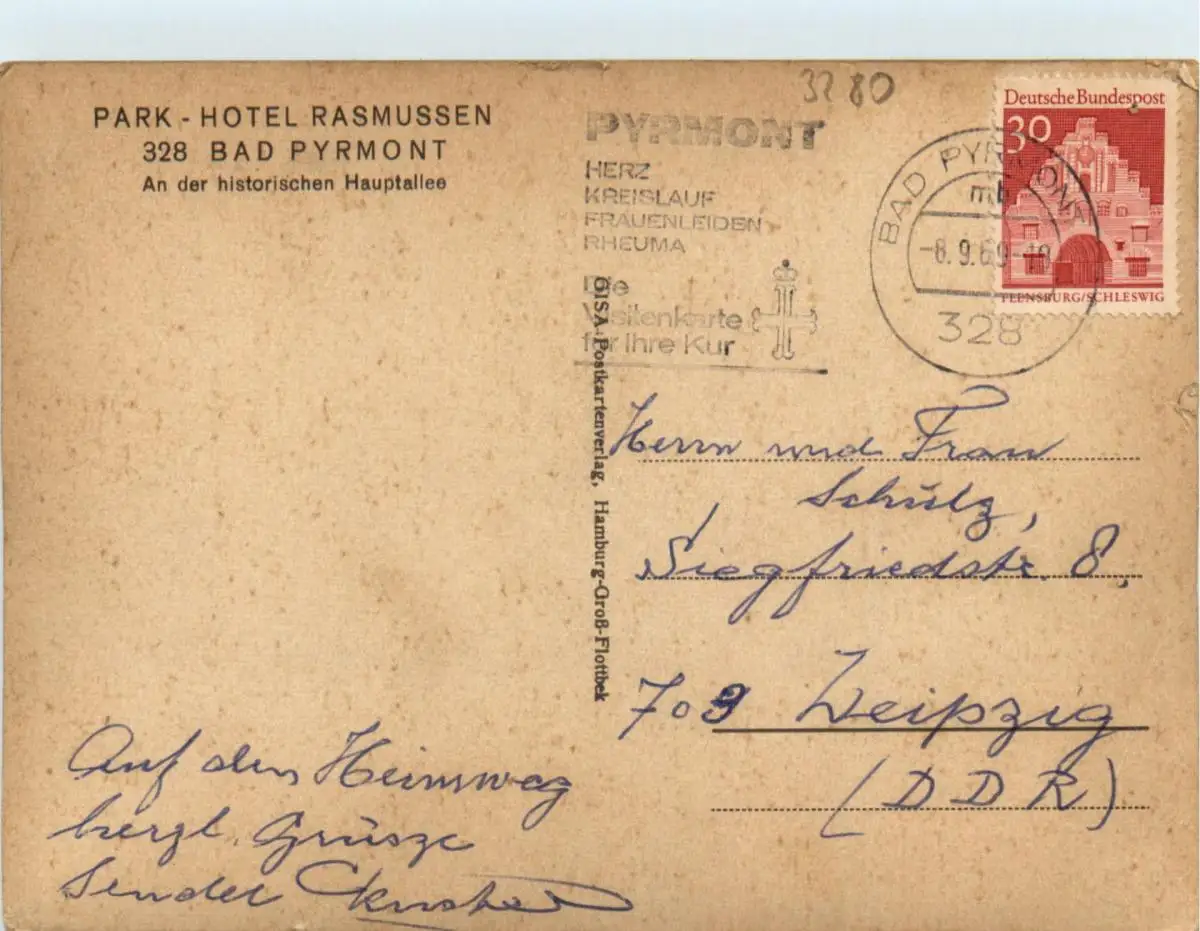 3280
PARK - HOTEL RASMUSSEN
328 BAD PYRMONT
An der historischen Hauptallee
PYRMONT
HERZ
KREISLAUF
FRAUENLEIDEN
RHEUMA
Die
Visitenkarte
für Ihre Kur
BAD PYRMONT
mb
-8.9.69-19
328
Deutsche Bundespost
30
FLENSBURG/SCHLESWIG
GISA-Postkartenverlag, Hamburg-Groß-Flottbek
Herrn und Frau
Schülz,
Siegfriedstr. 8.
703 Leipzig
(DDR)
Auf den Heimweg
herzl. Grüsze
Sendet